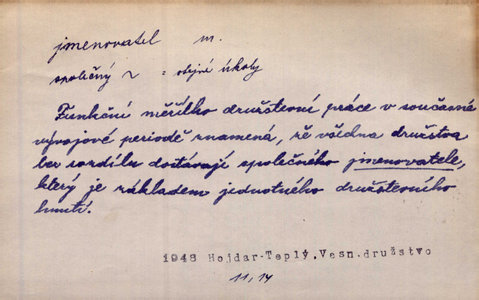 jmenovatel m.
společný ~ = stejné úkoly
Funkční měřítko družstevní práce v současné
vývojové periodě znamená, že všechna družstva
bez rozdílu dostávají společného jmenovatele,
který je základem jednotného družstevního
hnutí.
1948 Hojdar-Teplý, Vesn. družstvo
11, 14